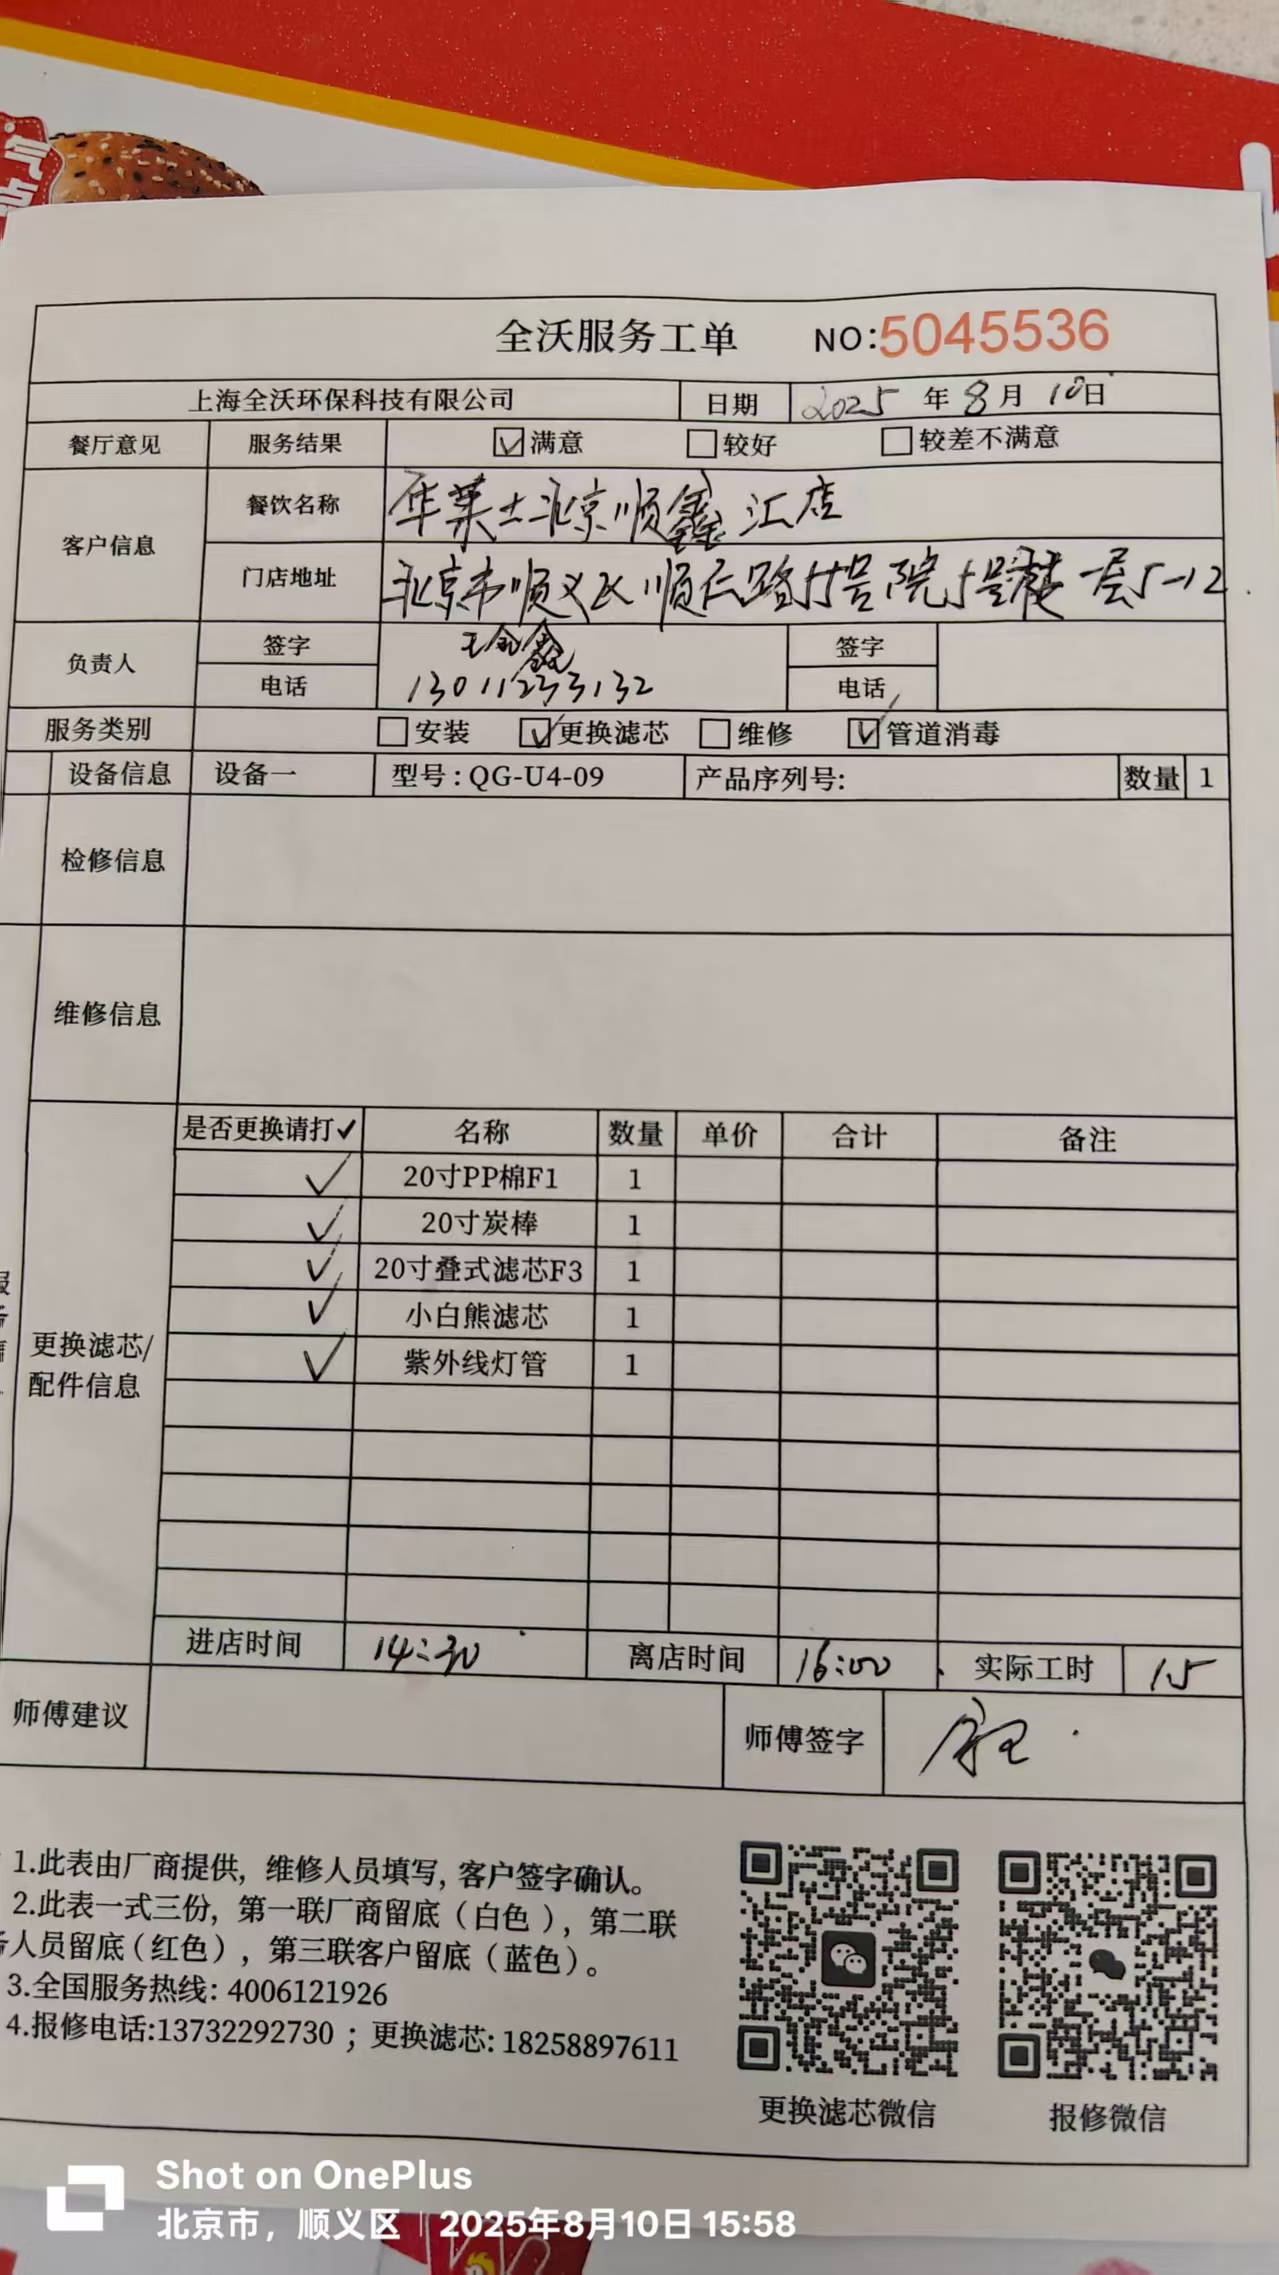 气
全沃服务工单 NO:5045536
上海全沃环保科技有限公司 日期 2025 年 8 月 10 日
餐厅意见 服务结果 ☑满意 □较好 □较差不满意
客户信息 餐饮名称 华莱士北京顺鑫汇店
门店地址 北京市顺义区顺仁路54号院5号楼一层5-12
负责人 签字 王金鑫 签字
电话 13011233132 电话
服务类别 □安装 ☑更换滤芯 □维修 ☑管道消毒
设备信息 设备一 型号:QG-U4-09 产品序列号: 数量 1
检修信息
维修信息
更换滤芯/
配件信息
是否更换请打✓ 名称 数量 单价 合计 备注
✓ 20寸PP棉F1 1
✓ 20寸炭棒 1
✓ 20寸叠式滤芯F3 1
✓ 小白熊滤芯 1
✓ 紫外线灯管 1
进店时间 14:30 离店时间 16:00 实际工时 1.5
师傅建议 师傅签字
1.此表由厂商提供, 维修人员填写, 客户签字确认。
2.此表一式三份, 第一联厂商留底(白色), 第二联
人员留底(红色), 第三联客户留底(蓝色)。
3.全国服务热线: 4006121926
4.报修电话:13732292730 ; 更换滤芯: 18258897611
更换滤芯微信 报修微信
Shot on OnePlus
北京市, 顺义区 | 2025年8月10日 15:58